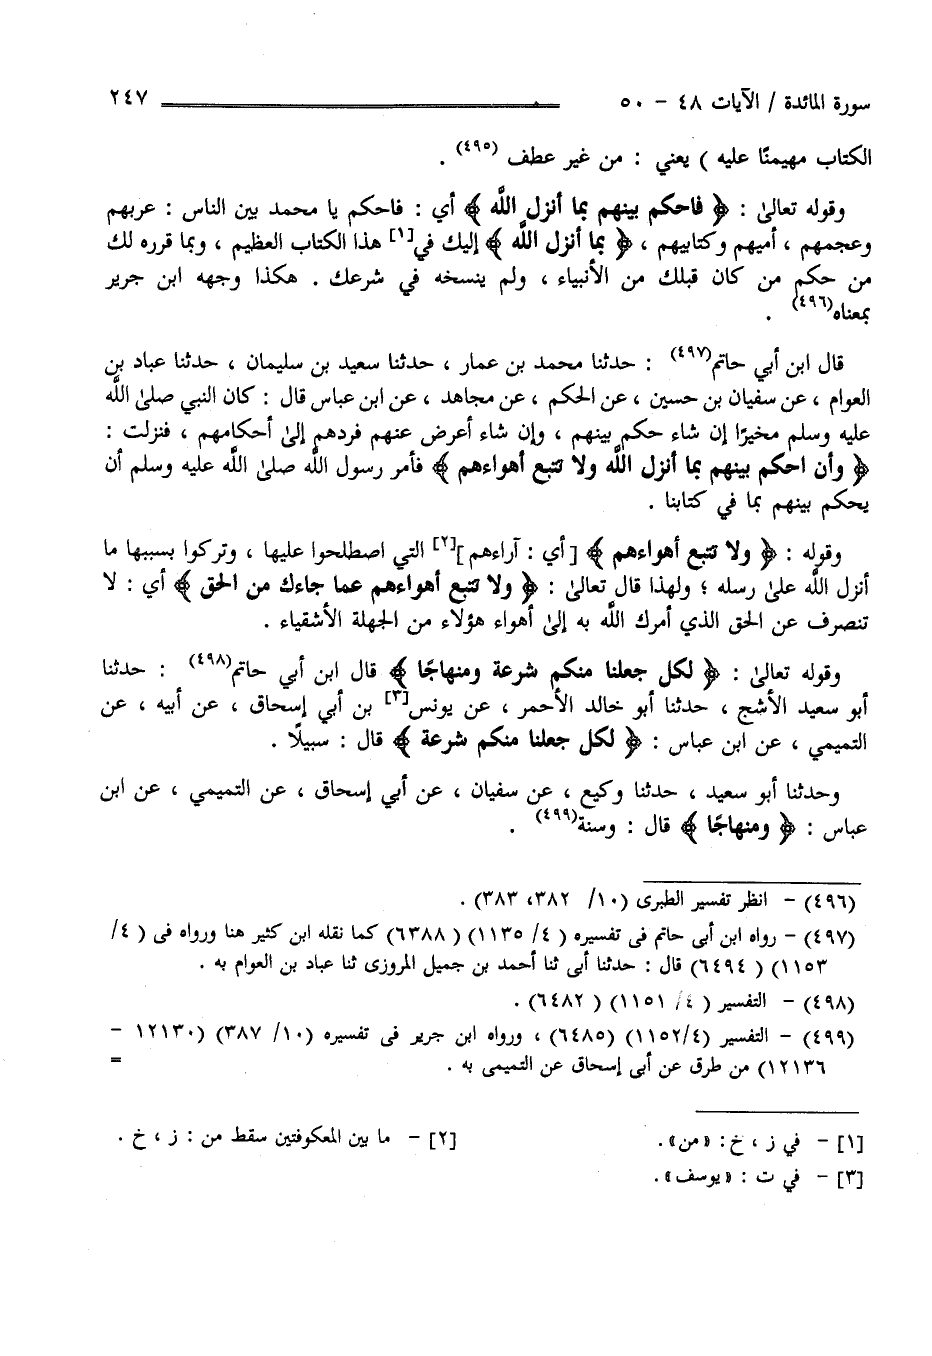 سورة المائدة / الآيات ٤٨ - ٥٠ ٢٤٧
الكتاب مهيمنًا عليه ) يعني : من غير عطف (٤٩٥) .
وقوله تعالىٰ : ﴿ فاحكم بينهم بما أنزل اللَّه ﴾ أي : فاحكم يا محمد بين الناس : عربهم
وعجمهم ، أميهم وكتابيهم ، ﴿ بما أنزل اللَّه ﴾ إليك في[١] هذا الكتاب العظيم ، وبما قرره لك
من حكم من كان قبلك من الأنبياء ، ولم ينسخه في شرعك . هكذا وجهه ابن جرير
بمعناه(٤٩٦) .
قال ابن أبي حاتم(٤٩٧) : حدثنا محمد بن عمار ، حدثنا سعيد بن سليمان ، حدثنا عباد بن
العوام ، عن سفيان بن حسين ، عن الحكم ، عن مجاهد ، عن ابن عباس قال : كان النبي صلىٰ اللَّه
عليه وسلم مخيرًا إن شاء حكم بينهم ، وإن شاء أعرض عنهم فردهم إلىٰ أحكامهم ، فنزلت :
﴿ وأن احكم بينهم بما أنزل اللَّه ولا تتبع أهواءهم ﴾ فأمر رسول اللَّه صلىٰ اللَّه عليه وسلم أن
يحكم بينهم بما في كتابنا .
وقوله : ﴿ ولا تتبع أهواءهم ﴾ [ أي : آراءهم ][٢] التي اصطلحوا عليها ، وتركوا بسببها ما
أنزل اللَّه علىٰ رسله ؛ ولهذا قال تعالىٰ : ﴿ ولا تتبع أهواءهم عما جاءك من الحق ﴾ أي : لا
تنصرف عن الحق الذي أمرك اللَّه به إلىٰ أهواء هؤلاء من الجهلة الأشقياء .
وقوله تعالىٰ : ﴿ لكل جعلنا منكم شرعة ومنهاجًا ﴾ قال ابن أبي حاتم(٤٩٨) : حدثنا
أبو سعيد الأشج ، حدثنا أبو خالد الأحمر ، عن يونس[٣] بن أبي إسحاق ، عن أبيه ، عن
التميمي ، عن ابن عباس : ﴿ لكل جعلنا منكم شرعة ﴾ قال : سبيلًا .
وحدثنا أبو سعيد ، حدثنا وكيع ، عن سفيان ، عن أبي إسحاق ، عن التميمي ، عن ابن
عباس : ﴿ ومنهاجًا ﴾ قال : وسنة(٤٩٩) .
(٤٩٦) - انظر تفسير الطبرى (١٠/ ٣٨٢، ٣٨٣) .
(٤٩٧) - رواه ابن أبى حاتم فى تفسيره ( ٤/ ١١٣٥) ( ٦٣٨٨) كما نقله ابن كثير هنا ورواه فى ( ٤/
١١٥٣) ( ٦٤٩٤) قال : حدثنا أبى ثنا أحمد بن جميل المروزى ثنا عباد بن العوام به .
(٤٩٨) - التفسير ( ٤/ ١١٥١) ( ٦٤٨٢) .
(٤٩٩) - التفسير (١١٥٢/٤) (٦٤٨٥) ، ورواه ابن جرير فى تفسيره (١٠/ ٣٨٧) (١٢١٣٠ -
١٢١٣٦) من طرق عن أبى إسحاق عن التميمى به . =
[١] - في ز ، خ : «من». [٢] - ما بين المعكوفتين سقط من : ز ، خ .
[٣] - في ت : «يوسف».